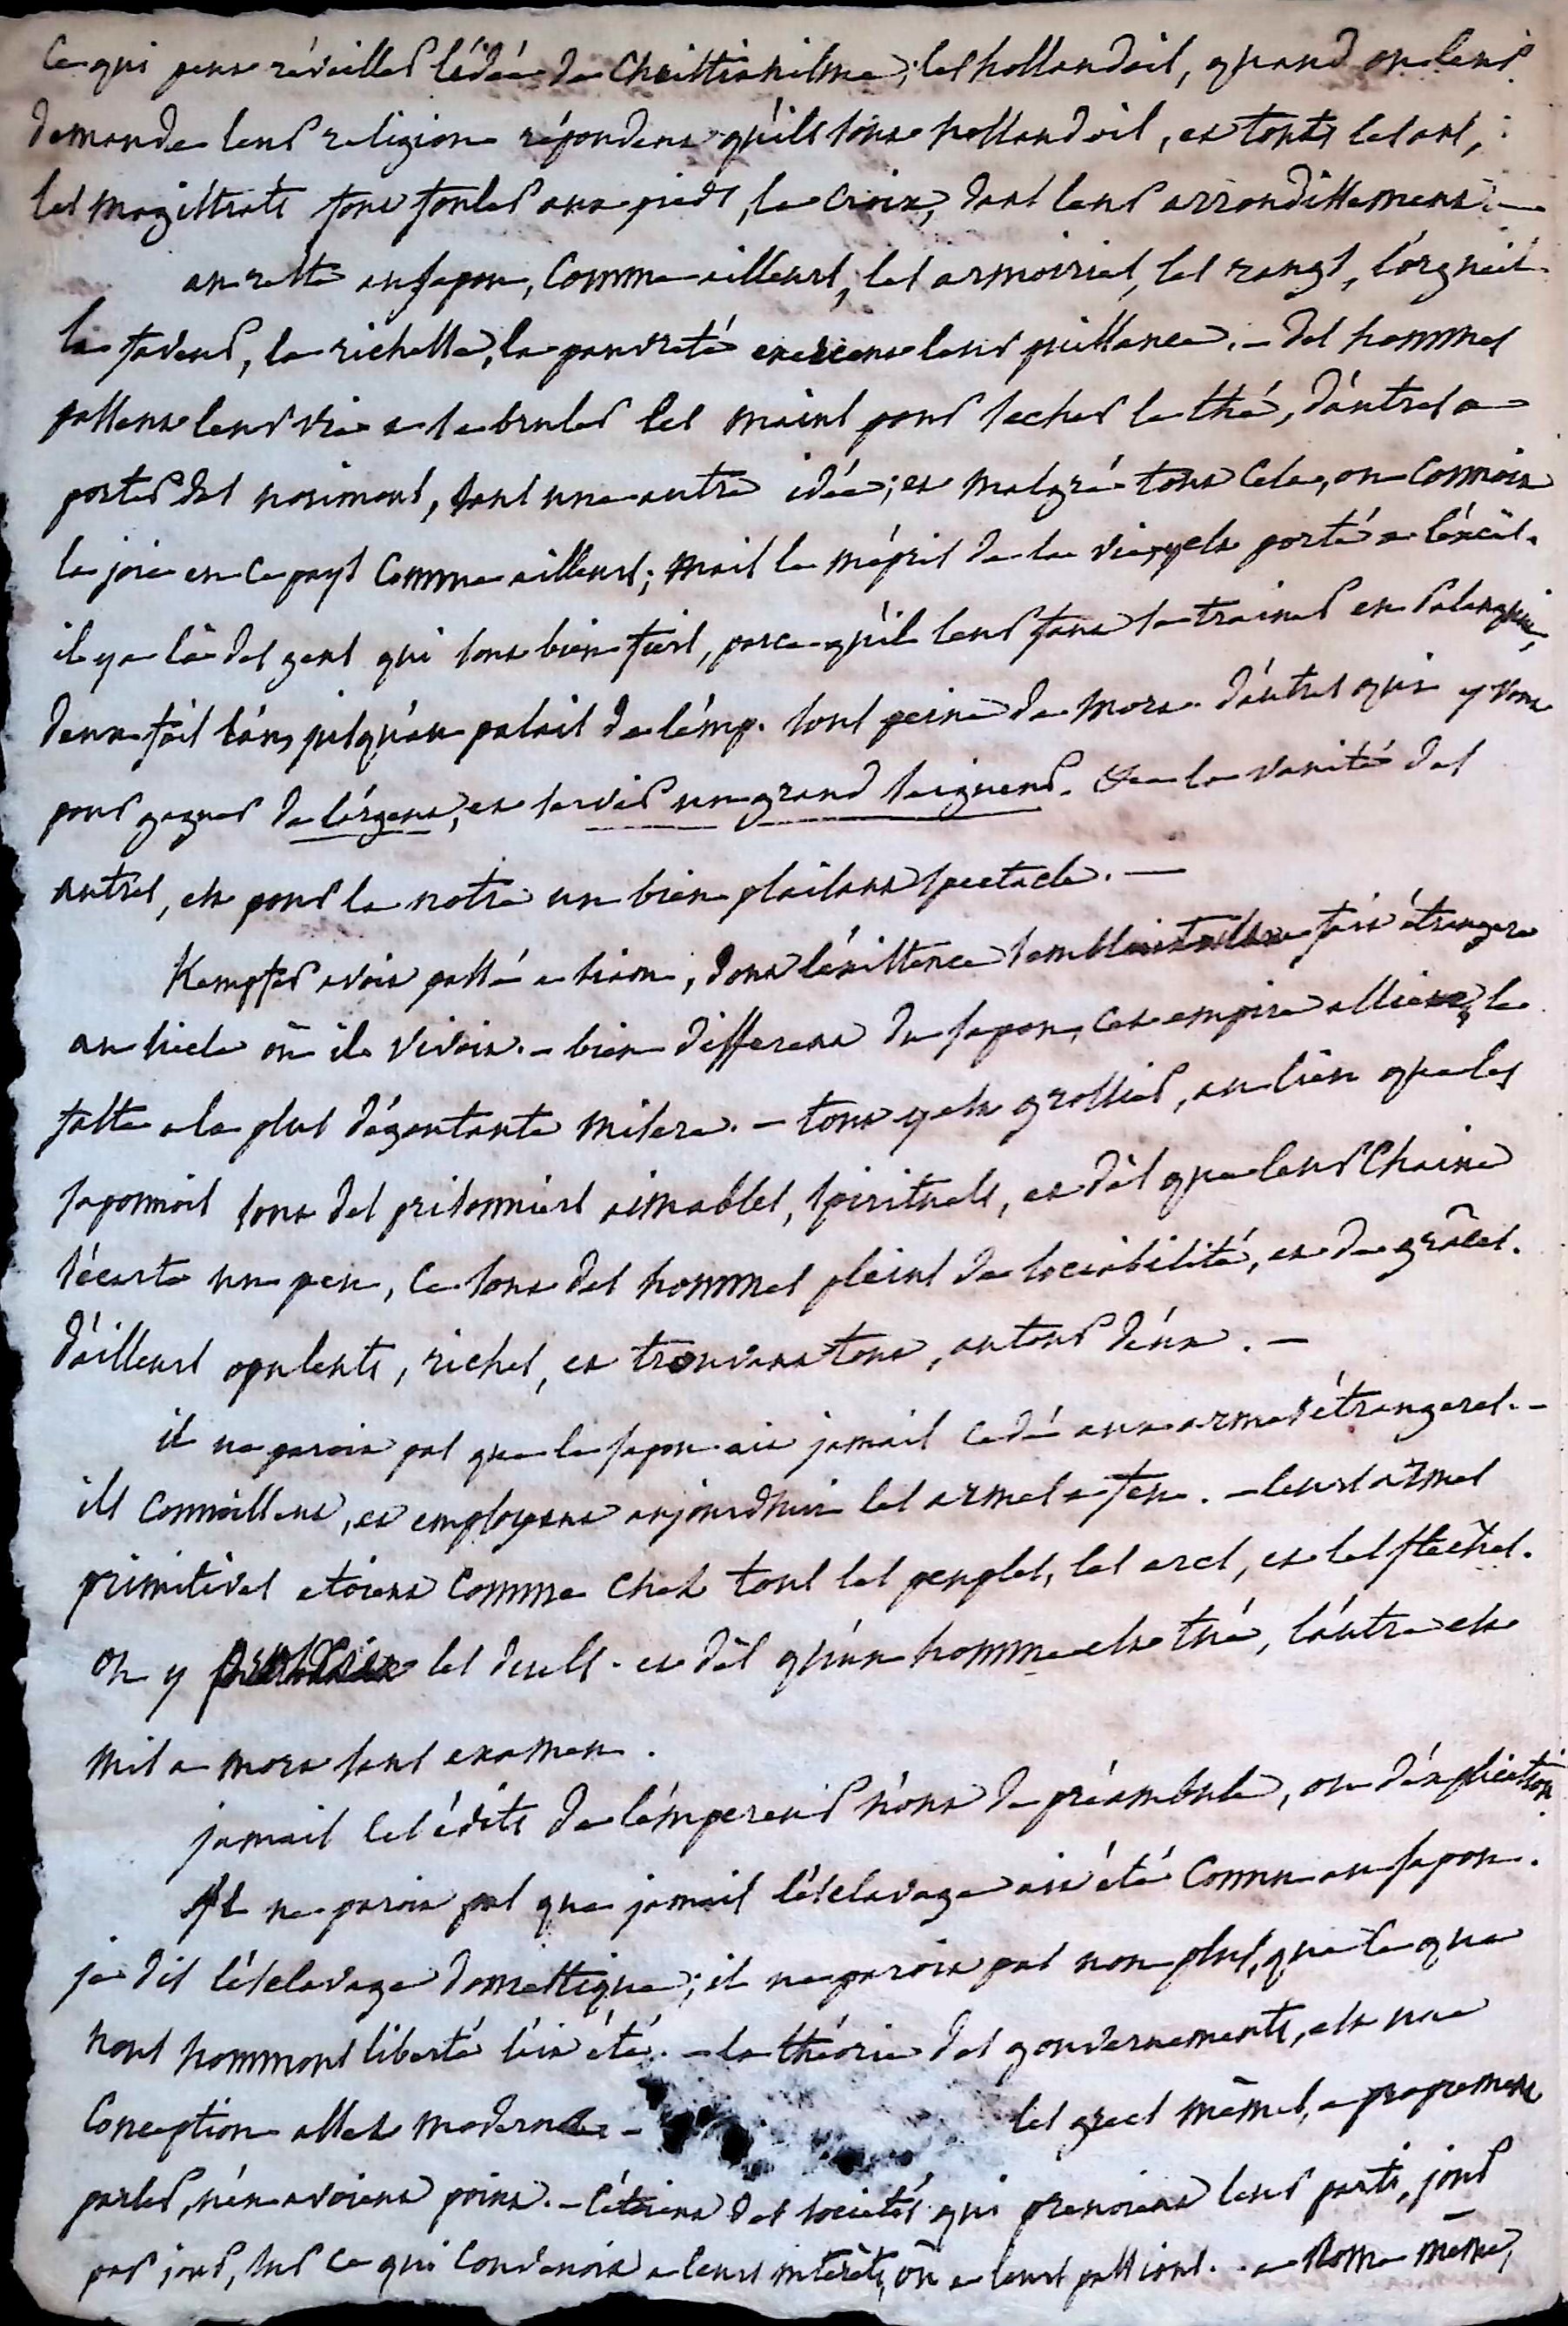 Ce qui peut réveiller l'idée de Christianisme; les hollandois, quand on leur
demande leur religion répondent qu'ils sont hollandois, et touts les ans,
les magistrats font fouler aux pieds, la croix, dans leur arrondissement. —
au reste au japon, Comme ailleurs, les armoiries, les rangs, l'orgueil
la faveur, la richesse, la pauvreté exercent leur puissance. — des hommes
passent leur vie a se bruler les mains pour secher le thé, d'autres a
porter des norimons, sans une autre idée; et malgré tout Cela, on Connoit
la joie en ce pays Comme ailleurs; mais le mépris de la vie, y est porté a l'éxcès.
il y a là des gens qui sont bien fiers, parce qu'il leur faut se trainer en Palanquin,
deux fois l'an, jusqu'au palais de l'émp. sous peine de mort. d'autres qui y vont
pour gagner de l'argent, et servir un grand seigneur. Que la vanité des
autres, est pour la notre un bien plaisant spectacle. —
Kempfer avoit passé a siam, dont l'éxistence tout a fait étrangere
au siecle où il vivoit. — bien different du japon, Cet empire allie le
faste a la plus dégoutante misere. — tout y est grossier, au lieu que les
japonnois sont des prisonniers aimables, spirituels, et dès que leur Chaine
s'écarte un peu, ce sont des hommes pleins de sociabilité, et de grâces.
d'ailleurs opulents, riches, et trouvant tout, autour d'eux. —
il ne paroit pas que le japon ait jamais cedé aux armes étrangeres. —
ils Connoissent, et employent aujourdhui les armes a feu. — leurs armes
primitives etoient Comme chez tous les peuples, les arcs, et les flêches.
on y les duels. et dès qu'un homme est tué, l'autre est
mis a mort sans examen.
jamais les édits de l'émpereur n'ont de préambule, ou d'éxplication.
Il ne paroit pas que jamais l'ésclavage ait été Connu au japon.
je dis l'ésclavage domestique; il ne paroit pas non plus, que Ce que
nous nommons liberté l'ait été. — la théorie des gouvernements, est une
Conception assez moderne — les grecs mêmes, a proprement
parler, n'en avoient point. — C'étoient des societés qui prenoient leur parti, jour
par jour, sur ce qui Convenoit a leurs intérêts, ou a leurs passions. — a Rome même,